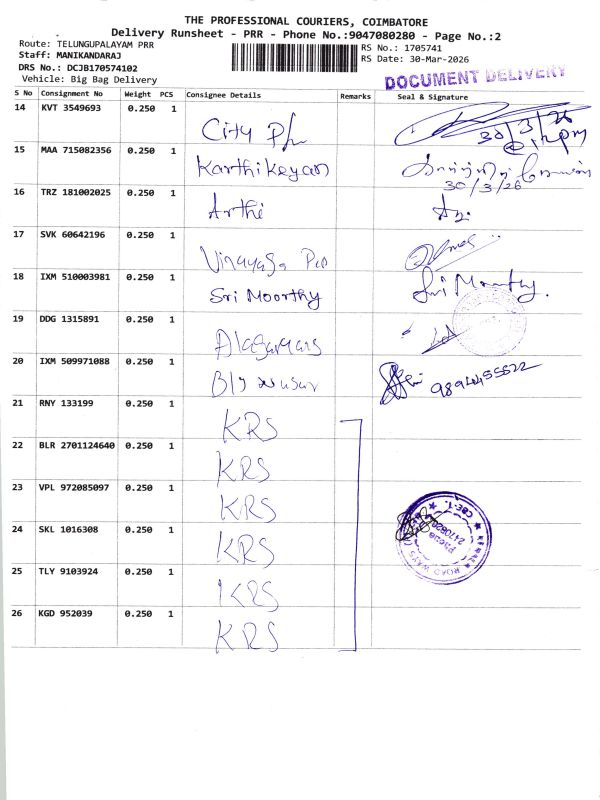 THE PROFESSIONAL COURIERS, COIMBATORE
Delivery Runsheet - PRR - Phone No.:9047080280 - Page No.:2
Route: TELUNGUPALAYAM PRR
Staff: MANIKANDARAJ
DRS No.: DCJB170574102
Vehicle: Big Bag Delivery
RS No.: 1705741
RS Date: 30-Mar-2026
DOCUMENT DELIVERY
S No Consignment No Weight PCS Consignee Details Remarks Seal & Signature
14 KVT 3549693 0.250 1 City 30/3/26
15 MAA 715082356 0.250 1 Karthikeyan 30/3/26
16 TRZ 181002025 0.250 1 Arthi
17 SVK 60642196 0.250 1 Vinayaga
18 IXM 510003981 0.250 1 Sri Moorthy Sri Moorthy.
19 DDG 1315891 0.250 1
20 IXM 509971088 0.250 1 9894455622
21 RNY 133199 0.250 1 KRS
22 BLR 2701124640 0.250 1 KRS
23 VPL 972085097 0.250 1 KRS
24 SKL 1016308 0.250 1 KRS
25 TLY 9103924 0.250 1 KRS
26 KGD 952039 0.250 1 KRS
ROAD WAYS
CBE-1.
Phone